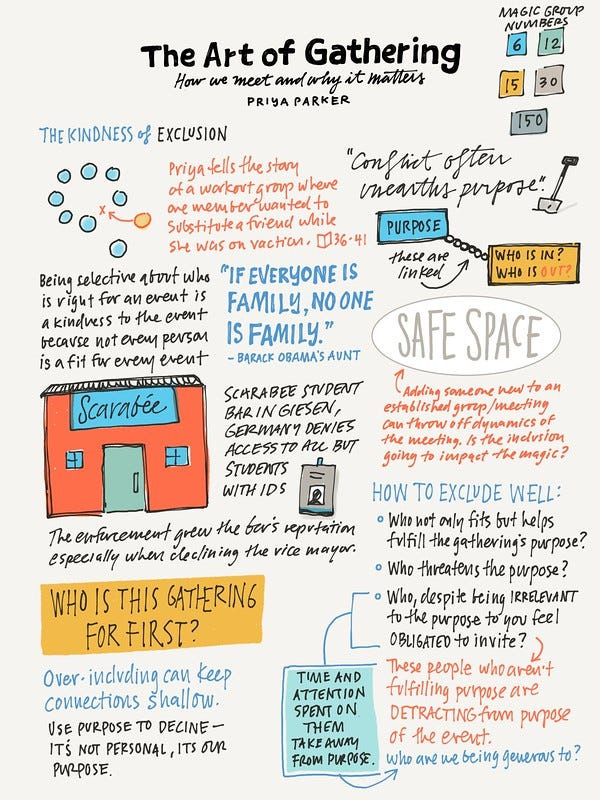 MAGIC GROUP
NUMBERS
6 12
15 30
150
The Art of Gathering
How we meet and why it matters
PRIYA PARKER
THE KINDNESS of EXCLUSION
x
Priya tells the story
of a workout group where
one member wanted to
Substitute a friend while
she was on vaction. 36-41
"Conflict often
unearths purpose".
PURPOSE
these are
linked
WHO IS IN?
WHO IS OUT?
Being selective about who
is right for an event is
a kindness to the event
because not every person
is a fit for every event
"IF EVERYONE IS
FAMILY, NO ONE
IS FAMILY."
- BARACK OBAMA'S AUNT
SAFE SPACE
Adding someone new to an
established group/meeting
can throw off dynamics of
the meeting. Is the inclusion
going to impact the magic?
Scarabée
SCARABEE STUDENT
BAR IN GIESEN,
GERMANY DENIES
ACCESS TO ALL BUT
STUDENTS
WITH IDS
The enforcement grew the bar's reputation
especially when declining the vice mayor.
HOW TO EXCLUDE WELL:
Who not only fits but helps
fulfill the gathering's purpose?
Who threatens the purpose?
Who, despite being IRRELEVANT
to the purpose to you feel
OBLIGATED to invite?
WHO IS THIS GATHERING
FOR FIRST?
Over-including can keep
connections shallow.
USE PURPOSE TO DECINE—
IT'S NOT PERSONAL, ITS OUR
PURPOSE.
TIME AND
ATTENTION
SPENT ON
THEM
TAKE AWAY
FROM PURPOSE.
These people who aren't
fulfilling purpose are
DETRACTING from purpose
of the event.
who are we being generous to?